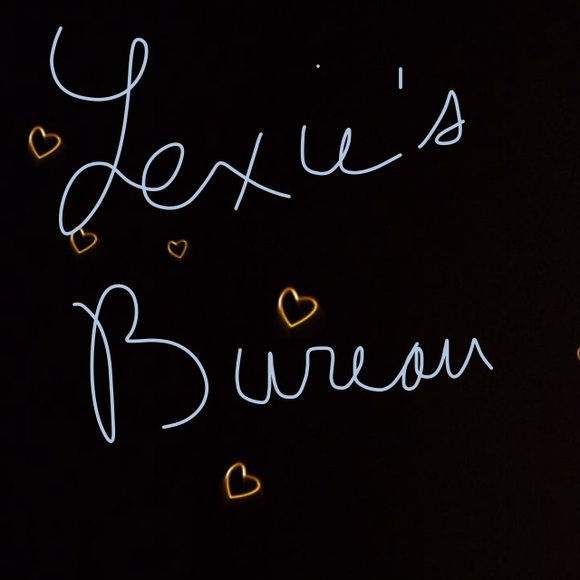 Lexie's
Bureau